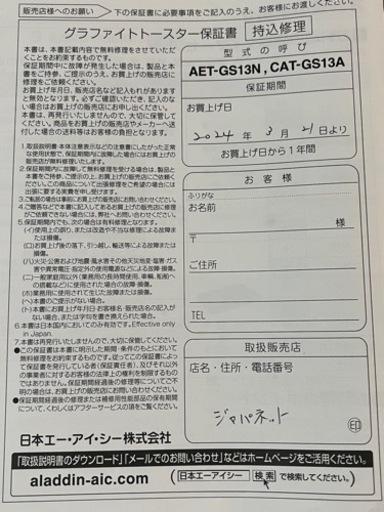 販売店様へのお願い 下の保証書に必要事項をご記入のうえ、お客様にお渡しください。
グラファイトトースター保証書 持込修理
本書は、本書記載内容で無料修理をさせていただく
ことをお約束するものです。
保証期間中に故障が発生した場合は、製品と本
書をご持参、ご提示のうえ、お買上げの販売店に
修理をご依頼ください。
お買上げ年月日、販売店名など記入もれがあります
と無効となります。必ずご確認いただき、記入のな
い場合はお買上げの販売店にお申し出ください。
本書は、再発行いたしませんので、大切に保管して
ください。商品をお買上げの販売店やメーカーへ送
付した場合の送料等はお客様の負担となります。
1.取扱説明書・本体注意表示などの注意書にしたがった正常
な使用状態で、保証期間内に故障した場合にはお買上げの販
売店が無料修理いたします。
2.保証期間内に故障して無料修理を受ける場合は、製品と
本書をご持参、ご提示の上、お買上げの販売店にご依頼くだ
さい。この商品について出張修理をご希望の場合には
出張に要する実費を申し受けます。
3.ご転居の場合は事前にお買上げの販売店にお問い合わせください。
4.ご贈答などで本書に記入してあるお買上げの販売店に修理
がご依頼できない場合には、弊社へお問い合わせください。
5.保証期間内でも、次の場合は有料修理となります。
(イ)使用上の誤り、または改造や不当な修理による故障また
は損傷。
(ロ)お買上げ後の落下、引っ越し、輸送等による故障または
損傷。
(ハ)火災・公害および地震・風水害その他天災地変・塩害・ガス
害や異常電圧・指定外の使用電源などによる故障、損傷。
(ニ)一般家庭用以外(業務用の長時間使用、車輌、船舶へ
の搭載など)に使用された場合の故障・損傷。
(ホ)業務用に使用されて生じた故障または損傷。
(ヘ)本書のご提示がない場合。
(ト)本書にお買上げ年月日・お客様名・販売店名の記入が
ない場合、または字句を書き換えられた場合。
6.本書は日本国内においてのみ有効です。Effective only
in Japan.
7.本書は再発行いたしませんので、大切に保管してください。
●この保証書は本書に明示した期間・条件のもとにおいて
無料修理をお約束するものです。従ってこの保証書によっ
て保証書を発行している者(保証責任者)、及びそれ以外
の事業者に対するお客様の法律上の権利を制限するもの
ではありません。保証期間経過後の修理等についてご不
明の場合は、お買上げの販売店にお問い合わせください。
●保証期間経過後の修理または補修用性能部品の保有期間
について、くわしくはアフターサービスの項をご覧ください。
日本エー・アイ・シー株式会社
型式の呼び
AET-GS13N, CAT-GS13A
保証期間
お買上げ日
2024年 3月 21日より
お買上げ日から1年間
お客様
ふりがな
お名前
様
〒
ご住所
TEL
取扱販売店
店名・住所・電話番号
ジャパネット
印
「取扱説明書のダウンロード」「メールでのお問い合わせ」などはホームページをご活用ください。
aladdin-aic.com (日本エーアイシー 検索 で検索してください。)